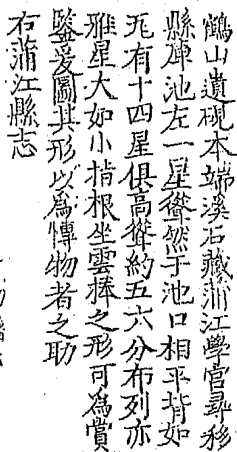 鶴山遺硯本端溪石藏蒲江學宮尋移
縣庫池左一星聳然于池口相平背如
瓦有十四星俱高聳約五六分布列亦
雅星大如小指根坐雲捧之形可為賞
鑒爰圖其形以為博物者之助
右蒲江縣志